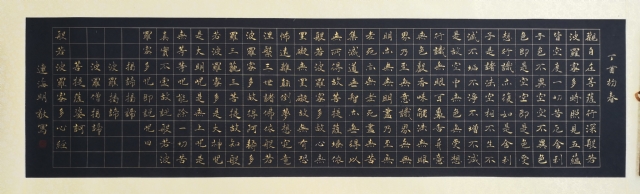 丁酉初春
觀自在菩薩行深般若
波羅蜜多時照見五蘊
皆空度一切苦厄舍利
子色不異空空不異色
色即是空空即是色受
想行識亦復如是舍利
子是諸法空相不生不
滅不垢不淨不增不減
是故空中無色無受想
行識無眼耳鼻舌身意
無色聲香味觸法無眼
界乃至無意識界無無
明亦無無明盡乃至無
老死亦無老死盡無苦
集滅道無智亦無得以
無所得故菩提薩埵依
般若波羅蜜多故心無
罣礙無罣礙故無有恐
怖遠離顛倒夢想究竟
涅槃三世諸佛依般若
波羅蜜多故得阿耨多
羅三藐三菩提故知般
若波羅蜜多是大神咒
是大明咒是無上咒是
無等等咒能除一切苦
真實不虛故說般若波
羅蜜多咒即說咒曰
揭諦揭諦
波羅揭諦
波羅僧揭諦
菩提薩婆訶
般若波羅蜜多心經